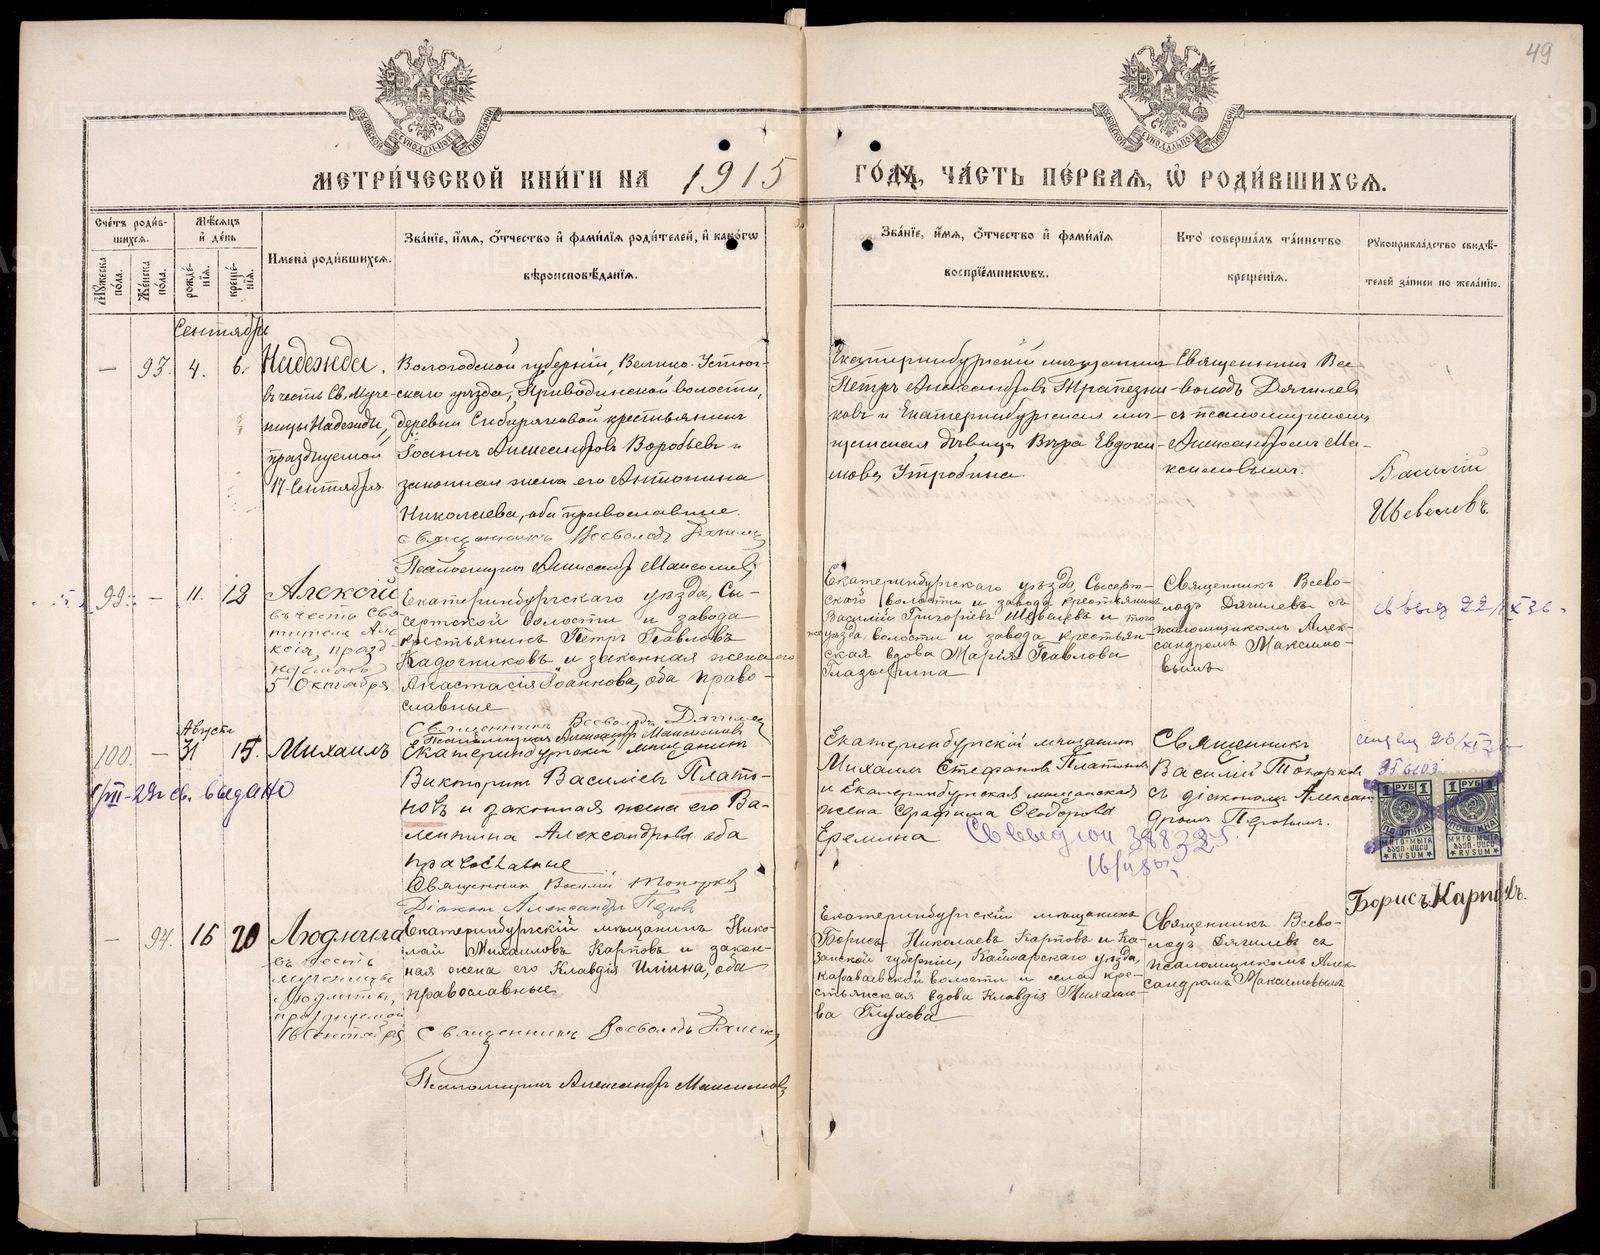 49
МЕТРИ́ЧЕСКОЙ КНИ́ГИ НА 1915 ГО́ДЪ, ЧА́СТЬ ПЕ́РВАЯ, Ѡ РОДИ́ВШИХСЯ.
Сче́тъ роди́в-
шихся.
Мѣ́сяцъ
и҆ де́нь
Мꙋ́жеска по́ла.
Же́нска по́ла.
рожде́-нїя.
креще́-нїя.
Имена̀ роди́вшихся.
Зва́нїе, и҆́мѧ, ѻ҆́тчество и҆ фами́лїя роди́телей, и҆ како́гѡ
вѣроисповѣ́данїя.
Зва́нїе, и҆́мѧ, ѻ҆́тчество и҆ фами́лїя
воспрїе́мникѡвъ.
Кто̀ соверша́лъ та́инство
креще́нїя.
Рꙋкоприкла́дство свидѣ́-
телей за́писи по жела́нїю.
Сентябрь
— 93. 4. 6.
Надежда.
въ честь Св. Муче-
ницы Надежды,
празднуемой
17 Сентября
Вологодской губерніи, Велико-Устюг-
скаго уѣзда, Приводинской волости,
деревни Сибиряковой крестьянинъ
Іоаннъ Александровъ Воробьевъ и
законная жена его Антонина
Николаева, оба православные.
Священникъ Всеволодъ Дягилевъ
Псаломщикъ Александръ Максимовъ
Екатеринбургскій мѣщанинъ
Петръ Александровъ Трапезни-
ковъ и Екатеринбургская мѣ-
щанская дѣвица Вѣра Евдоки-
мова Утробина
Священникъ Все-
володъ Дягилевъ
съ псаломщикомъ
Александромъ Ма-
ксимовымъ.
Василій
Шевелевъ.
99. — 11. 12
Алексій
въ честь Свя-
тителя Але-
ксія, празд-
нуемаго
5 Октября
Екатеринбургскаго уѣзда, Сы-
сертской волости и завода
крестьянинъ Петръ Павловъ
Кадочниковъ и законная жена его
Анастасія Іоаннова, оба право-
славные
Священникъ Всеволодъ Дягилевъ
Псаломщикъ Александръ Максимовъ
Екатеринбургскаго уѣзда, Сысерт-
ской волости и завода крестьянинъ
Василій Григорьевъ Шевелевъ и того
же уѣзда, волости и завода крестьян-
ская вдова Марія Павлова
Гладырина
Священникъ Всево-
лодъ Дягилевъ съ
псаломщикомъ Алек-
сандромъ Максимо-
вымъ
Августа
100. — 31 15.
Михаилъ
св. выдано
Екатеринбургскій мѣщанинъ
Викторинъ Василіевъ Плато-
новъ и законная жена его Ва-
лентина Александрова оба
православные
Священникъ Василій Топорковъ
Діаконъ Александръ Перовъ
Екатеринбургскій мѣщанинъ
Михаилъ Стефановъ Платоновъ
и Екатеринбургская мѣщанская
жена Серафима Ѳеодорова
Еремина
Священникъ
Василій Топорковъ
съ діакономъ Алексан-
дромъ Перовымъ.
1 РУБ 1 РУБ
ПОШЛИНА ПОШЛИНА
МИТО-МЫТА МИТО-МЫТА
★RVSUM★ ★RVSUM★
Борисъ Карповъ.
— 94. 16 20
Людмила
въ честь
мученицы
Людмилы,
празднуемой
16 Сентября
Екатеринбургскій мѣщанинъ Нико-
лай Михаиловъ Карповъ и закон-
ная жена его Клавдія Ильина, оба
православные
Священникъ Всеволодъ Дягилевъ
Псаломщикъ Александръ Максимовъ
Екатеринбургскій мѣщанинъ
Борисъ Николаевъ Карповъ и Ка-
занской губерніи, Каймарскаго уѣзда,
Караваевской волости и села кре-
стьянская вдова Клавдія Михаило-
ва Глухова
Священникъ Всево-
лодъ Дягилевъ съ
псаломщикомъ Алек-
сандромъ Максимовымъ
METRIKI.GASO-URAL.RU